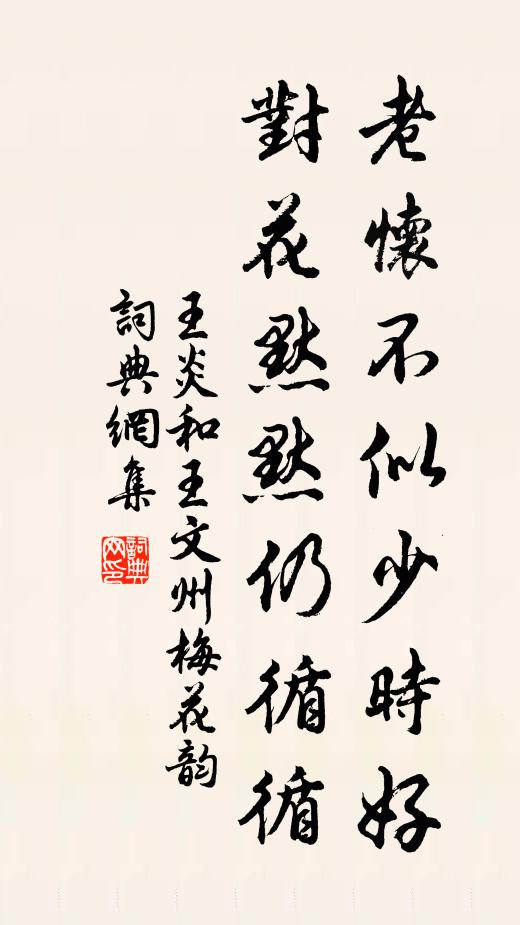 老懷不似少時好
對花默默仍循循
王炎和王文州梅花韵
詞典網集
詞典
网印